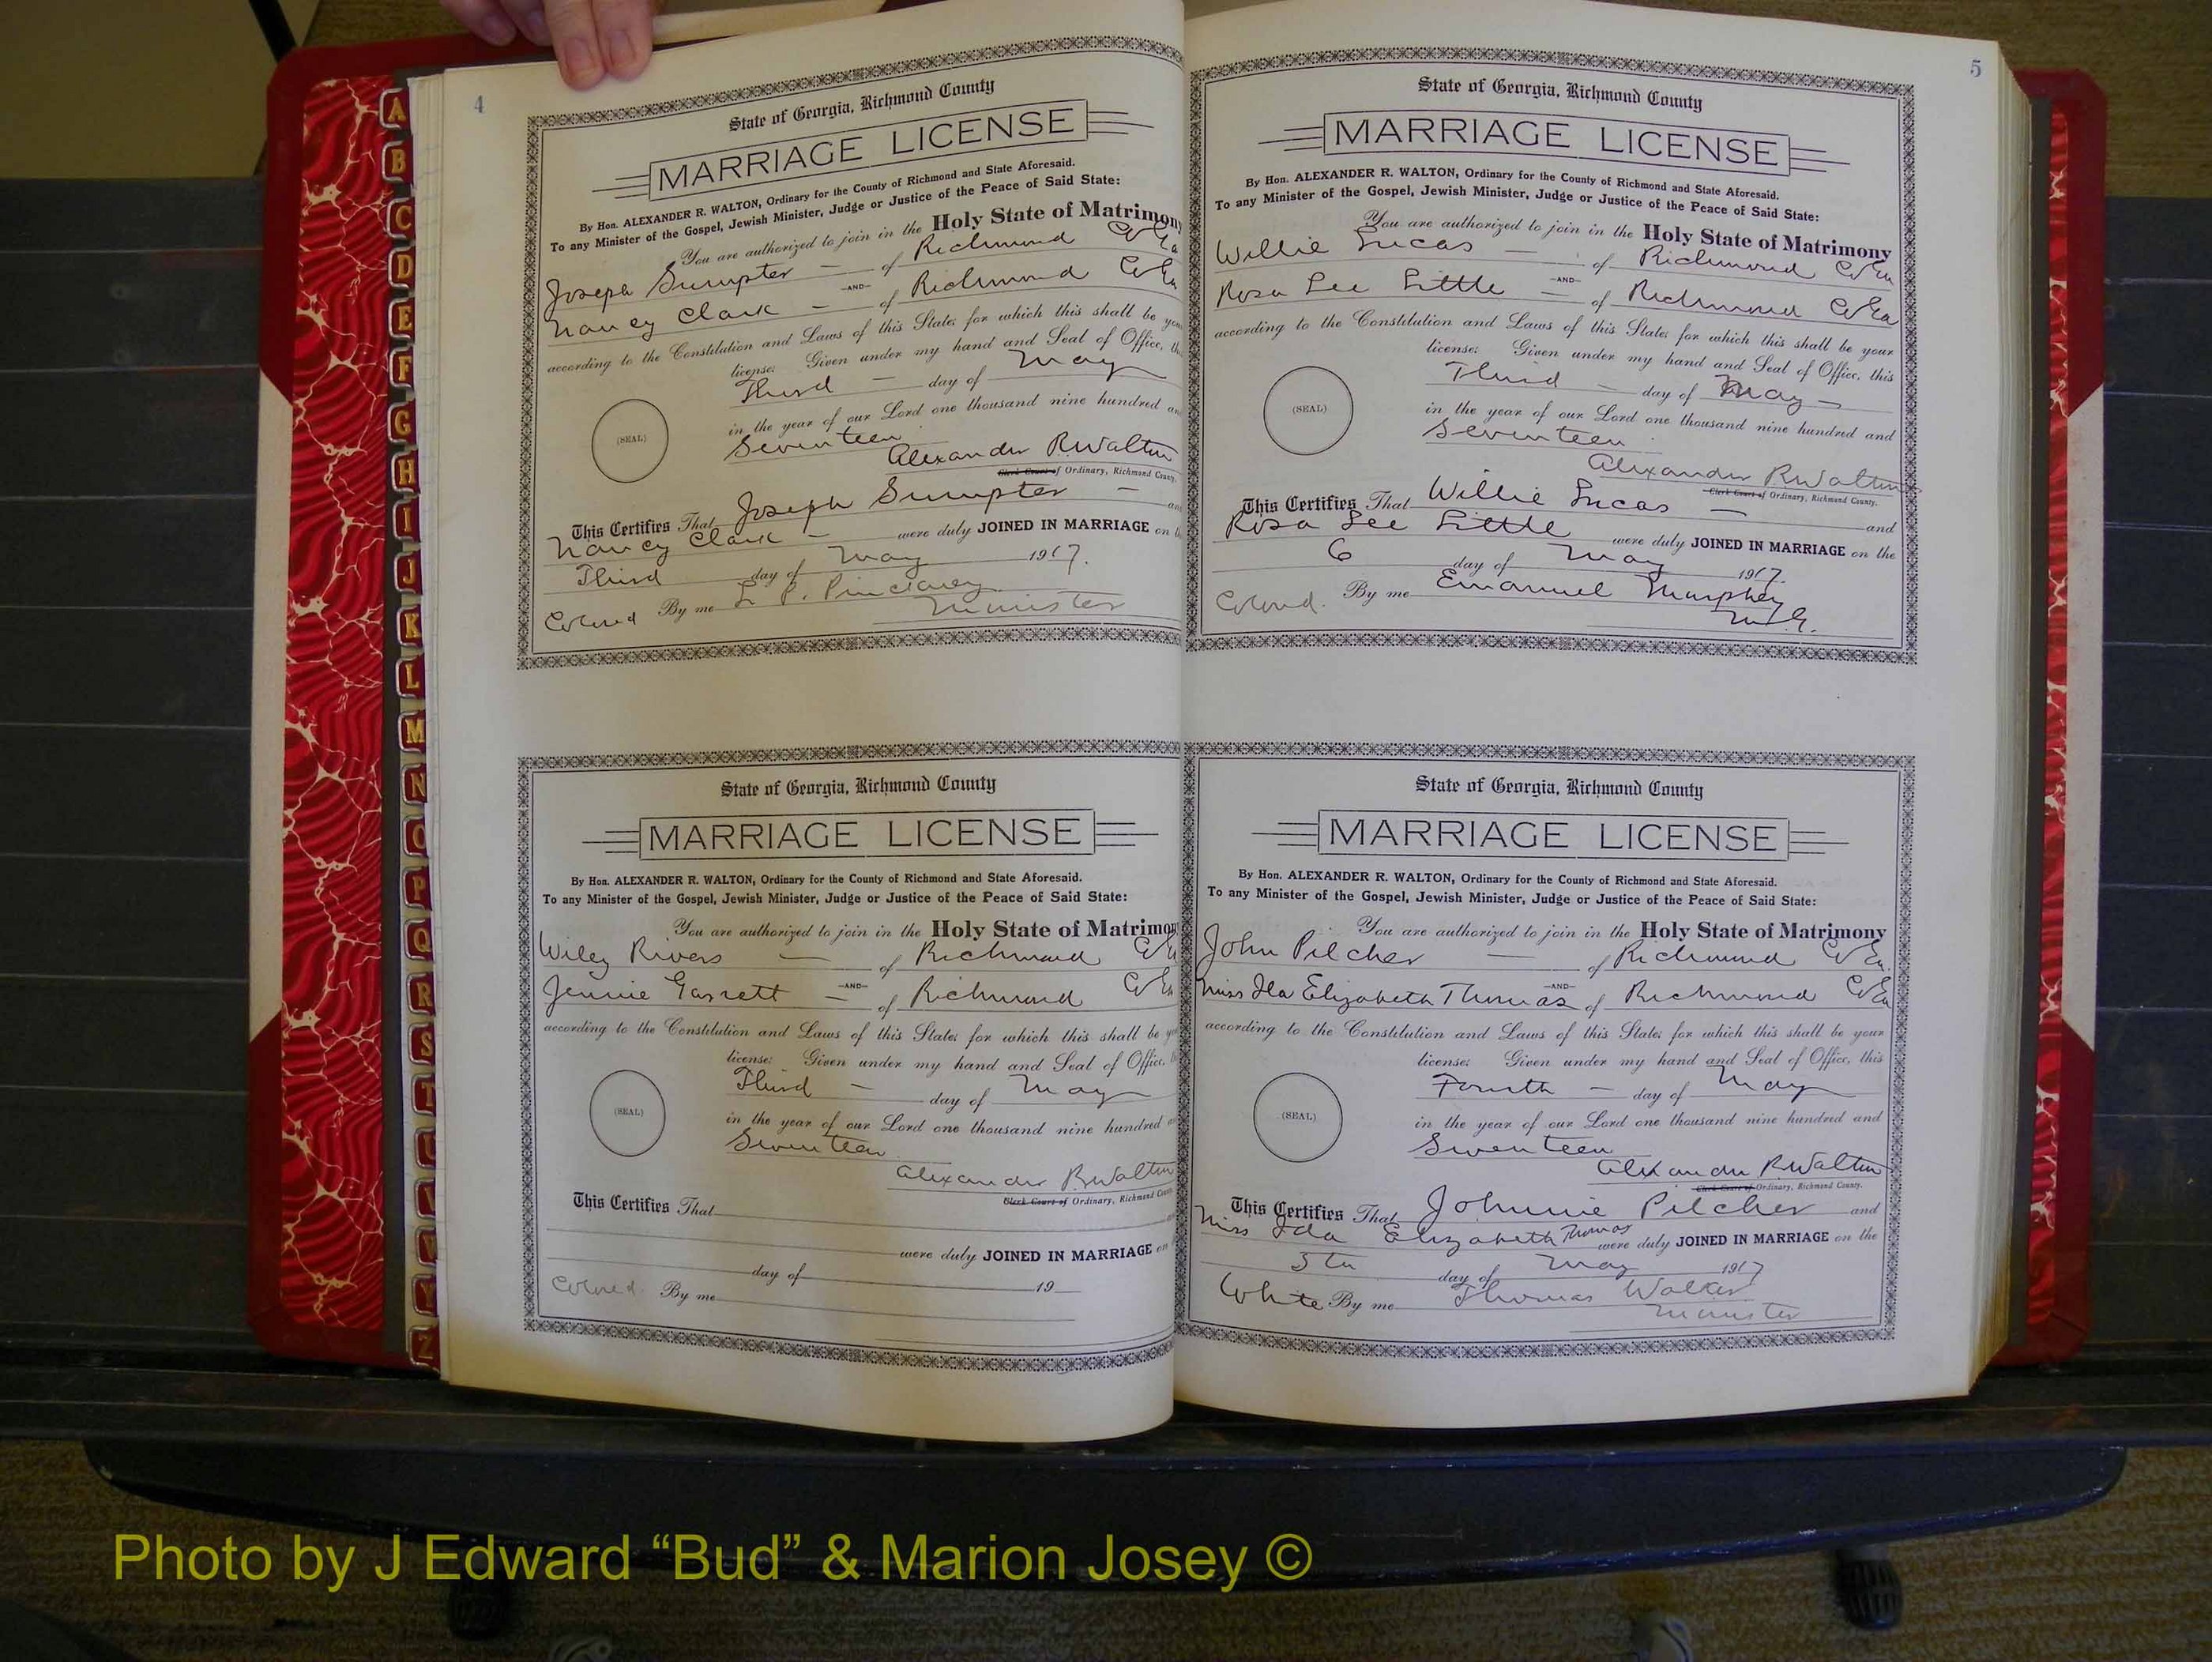 4
State of Georgia, Richmond County
MARRIAGE LICENSE
By Hon. ALEXANDER R. WALTON, Ordinary for the County of Richmond and State Aforesaid.
To any Minister of the Gospel, Jewish Minister, Judge or Justice of the Peace of Said State:
You are authorized to join in the Holy State of Matrimony
Joseph Sumpter — of Richmond Co Ga
—AND—
Nancy Clark — of Richmond Co Ga
according to the Constitution and Laws of this State; for which this shall be you
license: Given under my hand and Seal of Office, th
Third — day of May
in the year of our Lord one thousand nine hundred an
Seventeen
(SEAL)
Alexander R Walton
Clerk Court of Ordinary, Richmond County.
This Certifies That Joseph Sumpter — an
Nancy Clark — were duly JOINED IN MARRIAGE on t
Third day of May 1917.
Colored By me L. P. Pinckney
Minister
State of Georgia, Richmond County
MARRIAGE LICENSE
By Hon. ALEXANDER R. WALTON, Ordinary for the County of Richmond and State Aforesaid.
To any Minister of the Gospel, Jewish Minister, Judge or Justice of the Peace of Said State:
You are authorized to join in the Holy State of Matrimon
Wiley Rivers — of Richmond Co G
—AND—
Jennie Garrett — of Richmond Co Ga
according to the Constitution and Laws of this State; for which this shall be yo
license: Given under my hand and Seal of Office, t
Third — day of May
in the year of our Lord one thousand nine hundred a
Seventeen
(SEAL)
Alexander R Walton
Clerk Court of Ordinary, Richmond County
This Certifies That
were duly JOINED IN MARRIAGE on
day of 19
Colored By me
5
State of Georgia, Richmond County
MARRIAGE LICENSE
By Hon. ALEXANDER R. WALTON, Ordinary for the County of Richmond and State Aforesaid.
To any Minister of the Gospel, Jewish Minister, Judge or Justice of the Peace of Said State:
You are authorized to join in the Holy State of Matrimony
Willie Lucas — of Richmond Co Ga
—AND—
Rosa Lee Little — of Richmond Co Ga
according to the Constitution and Laws of this State; for which this shall be your
license: Given under my hand and Seal of Office, this
Third — day of May —
in the year of our Lord one thousand nine hundred and
Seventeen
(SEAL)
Alexander R Walton
Clerk Court of Ordinary, Richmond County.
This Certifies That Willie Lucas — and
Rosa Lee Little were duly JOINED IN MARRIAGE on the
6 day of May 1917.
Colored. By me Emanuel Murphey
M.G.
State of Georgia, Richmond County
MARRIAGE LICENSE
By Hon. ALEXANDER R. WALTON, Ordinary for the County of Richmond and State Aforesaid.
To any Minister of the Gospel, Jewish Minister, Judge or Justice of the Peace of Said State:
You are authorized to join in the Holy State of Matrimony
John Pilcher — of Richmond Co Ga.
—AND—
Miss Ida Elizabeth Thomas of Richmond Co Ga
according to the Constitution and Laws of this State; for which this shall be your
license: Given under my hand and Seal of Office, this
Fourth — day of May
in the year of our Lord one thousand nine hundred and
Seventeen
(SEAL)
Alexander R Walton
Clerk Court of Ordinary, Richmond County.
This Certifies That Johnnie Pilcher and
Miss Ida Elizabeth Thomas were duly JOINED IN MARRIAGE on the
5th day of May 1917
White By me Thomas Walker
Minister
A
B
C
D
E
F
G
H
I
J
K
L
M
N
O
P
Q
R
S
T
U
V
W
Y
Z
Photo by J Edward “Bud” & Marion Josey ©